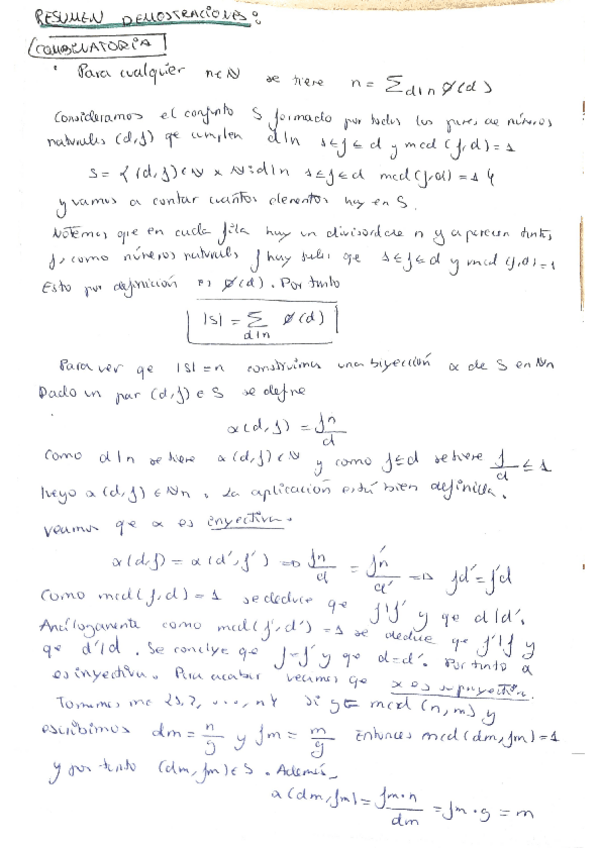 RESUMEN DEMOSTRACIONES:
COMBINATORIA
· Para cualquier n∈N se tiene n = Σ_{d|n} ∅(d)
Consideramos el conjunto S formado por todos los pares de números
naturales (d,j) qe cumplen d|n 1≤j≤d y mcd(j,d)=1
S = {(d,j)∈N×N: d|n 1≤j≤d mcd(j,d)=1}
y vamos a contar cuantos elementos hay en S.
Notemos que en cada fila hay un divisor d de n y aparecen tantos
j, como números naturales j hay tales que 1≤j≤d y mcd(j,d)=1
Esto por definición es ∅(d). Por tanto
|S| = Σ_{d|n} ∅(d)
Para ver qe |S|=n construimos una biyección α de S en Nn
Dado un par (d,j)∈S se define
α(d,j) = jn/d
Como d|n se tiene α(d,j)∈N y como j≤d se tiene j/d ≤ 1
luego α(d,j)∈Nn. La aplicación está bien definida.
veamos que α es inyectiva.
α(d,j) = α(d',j') => jn/d = j'n/d' => jd' = j'd
Como mcd(j,d)=1 se deduce qe j|j' y qe d|d'.
Análogamente como mcd(j',d')=1 se deduce qe j'|j y
qe d'|d. Se concluye qe j=j' y qe d=d'. Por tanto α
es inyectiva. Para acabar veamos qe α es suprayectiva.
Tomamos m∈{1,2,...,n} si g= mcd(n,m) y
escribimos dm = n/g y jm = m/g Entonces mcd(dm,jm)=1
y por tanto (dm,jm)∈S. Además
α(dm,jm) = jm·n/dm = jm·g = m